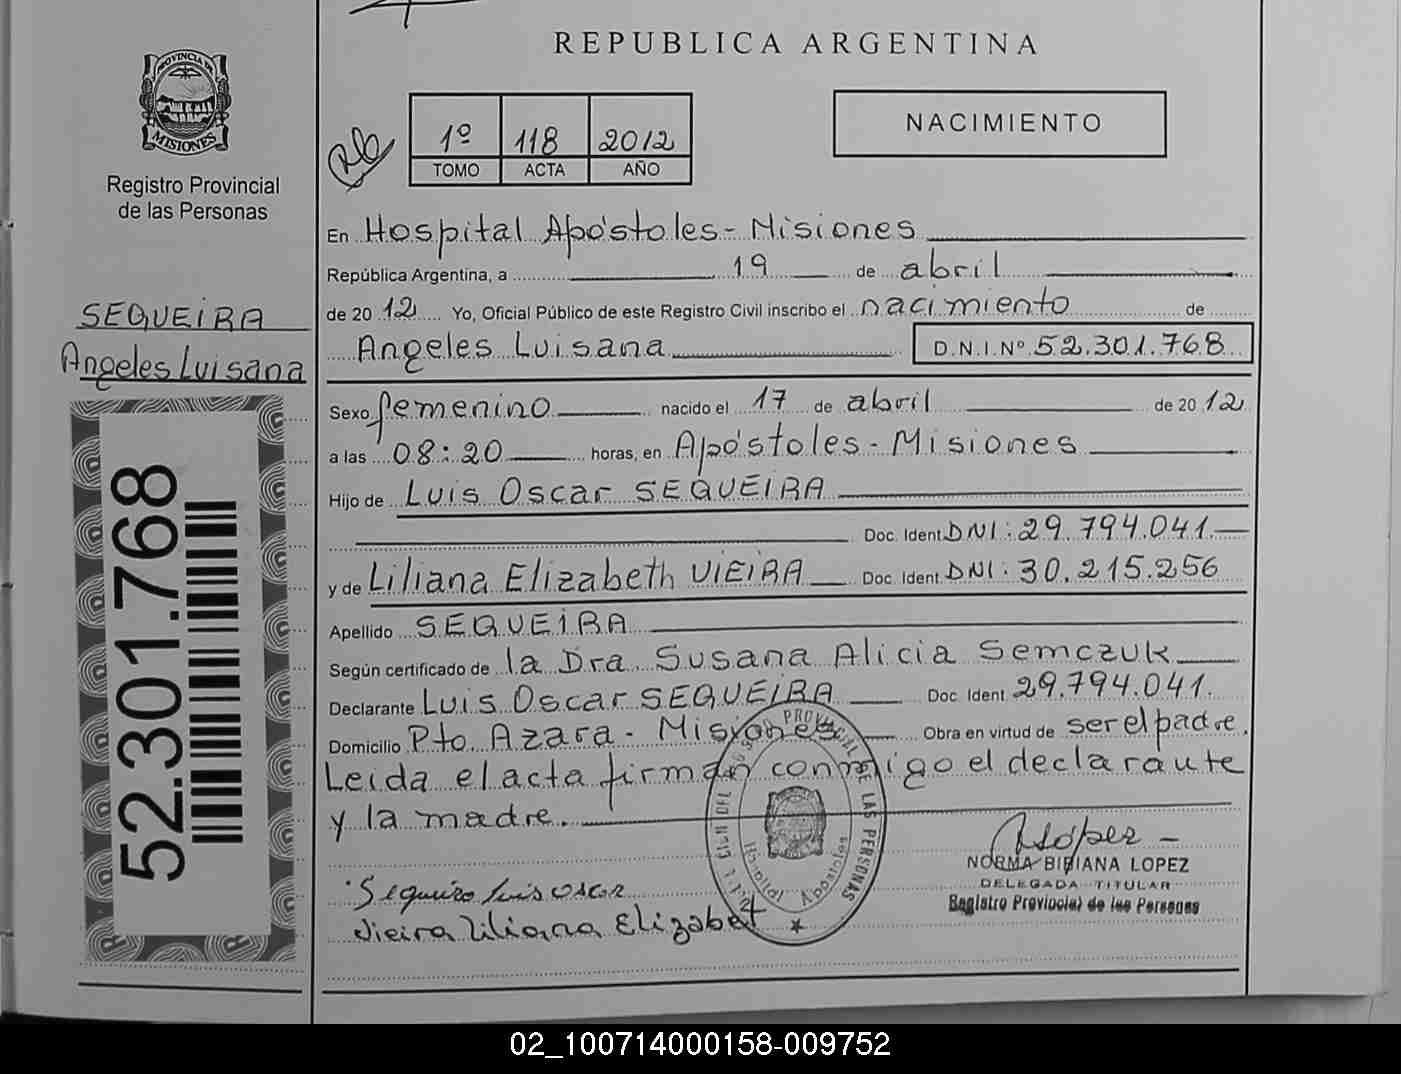 REPUBLICA ARGENTINA
PROVINCIA DE
MISIONES
Registro Provincial
de las Personas
1º 118 2012
TOMO ACTA AÑO
NACIMIENTO
En Hospital Apóstoles - Misiones
República Argentina, a 19 de abril
de 2012 Yo, Oficial Público de este Registro Civil inscribo el nacimiento de
Angeles Luisana D.N.I.Nº 52.301.768
SEQUEIRA
Angeles Luisana
52.301.768
Sexo femenino nacido el 17 de abril de 2012
a las 08:20 horas, en Apóstoles - Misiones
Hijo de Luis Oscar SEQUEIRA
Doc. Ident. DNI: 29.794.041.
y de Liliana Elizabeth VIEIRA Doc. Ident. DNI: 30.215.256
Apellido SEQUEIRA
Según certificado de la Dra Susana Alicia Semczuk
Declarante Luis Oscar SEQUEIRA Doc. Ident 29.794.041.
Domicilio Pto. Azara - Misiones Obra en virtud de ser el padre.
Leida el acta firman conmigo el declarante
y la madre.
PROVINCIAL DE LAS PERSONAS
Hospital Apóstoles
López
NORMA BIBIANA LOPEZ
DELEGADA TITULAR
Registro Provincial de las Personas
Sequeiro Luis oscar
Vieira liliana Elizabet
02_100714000158-009752